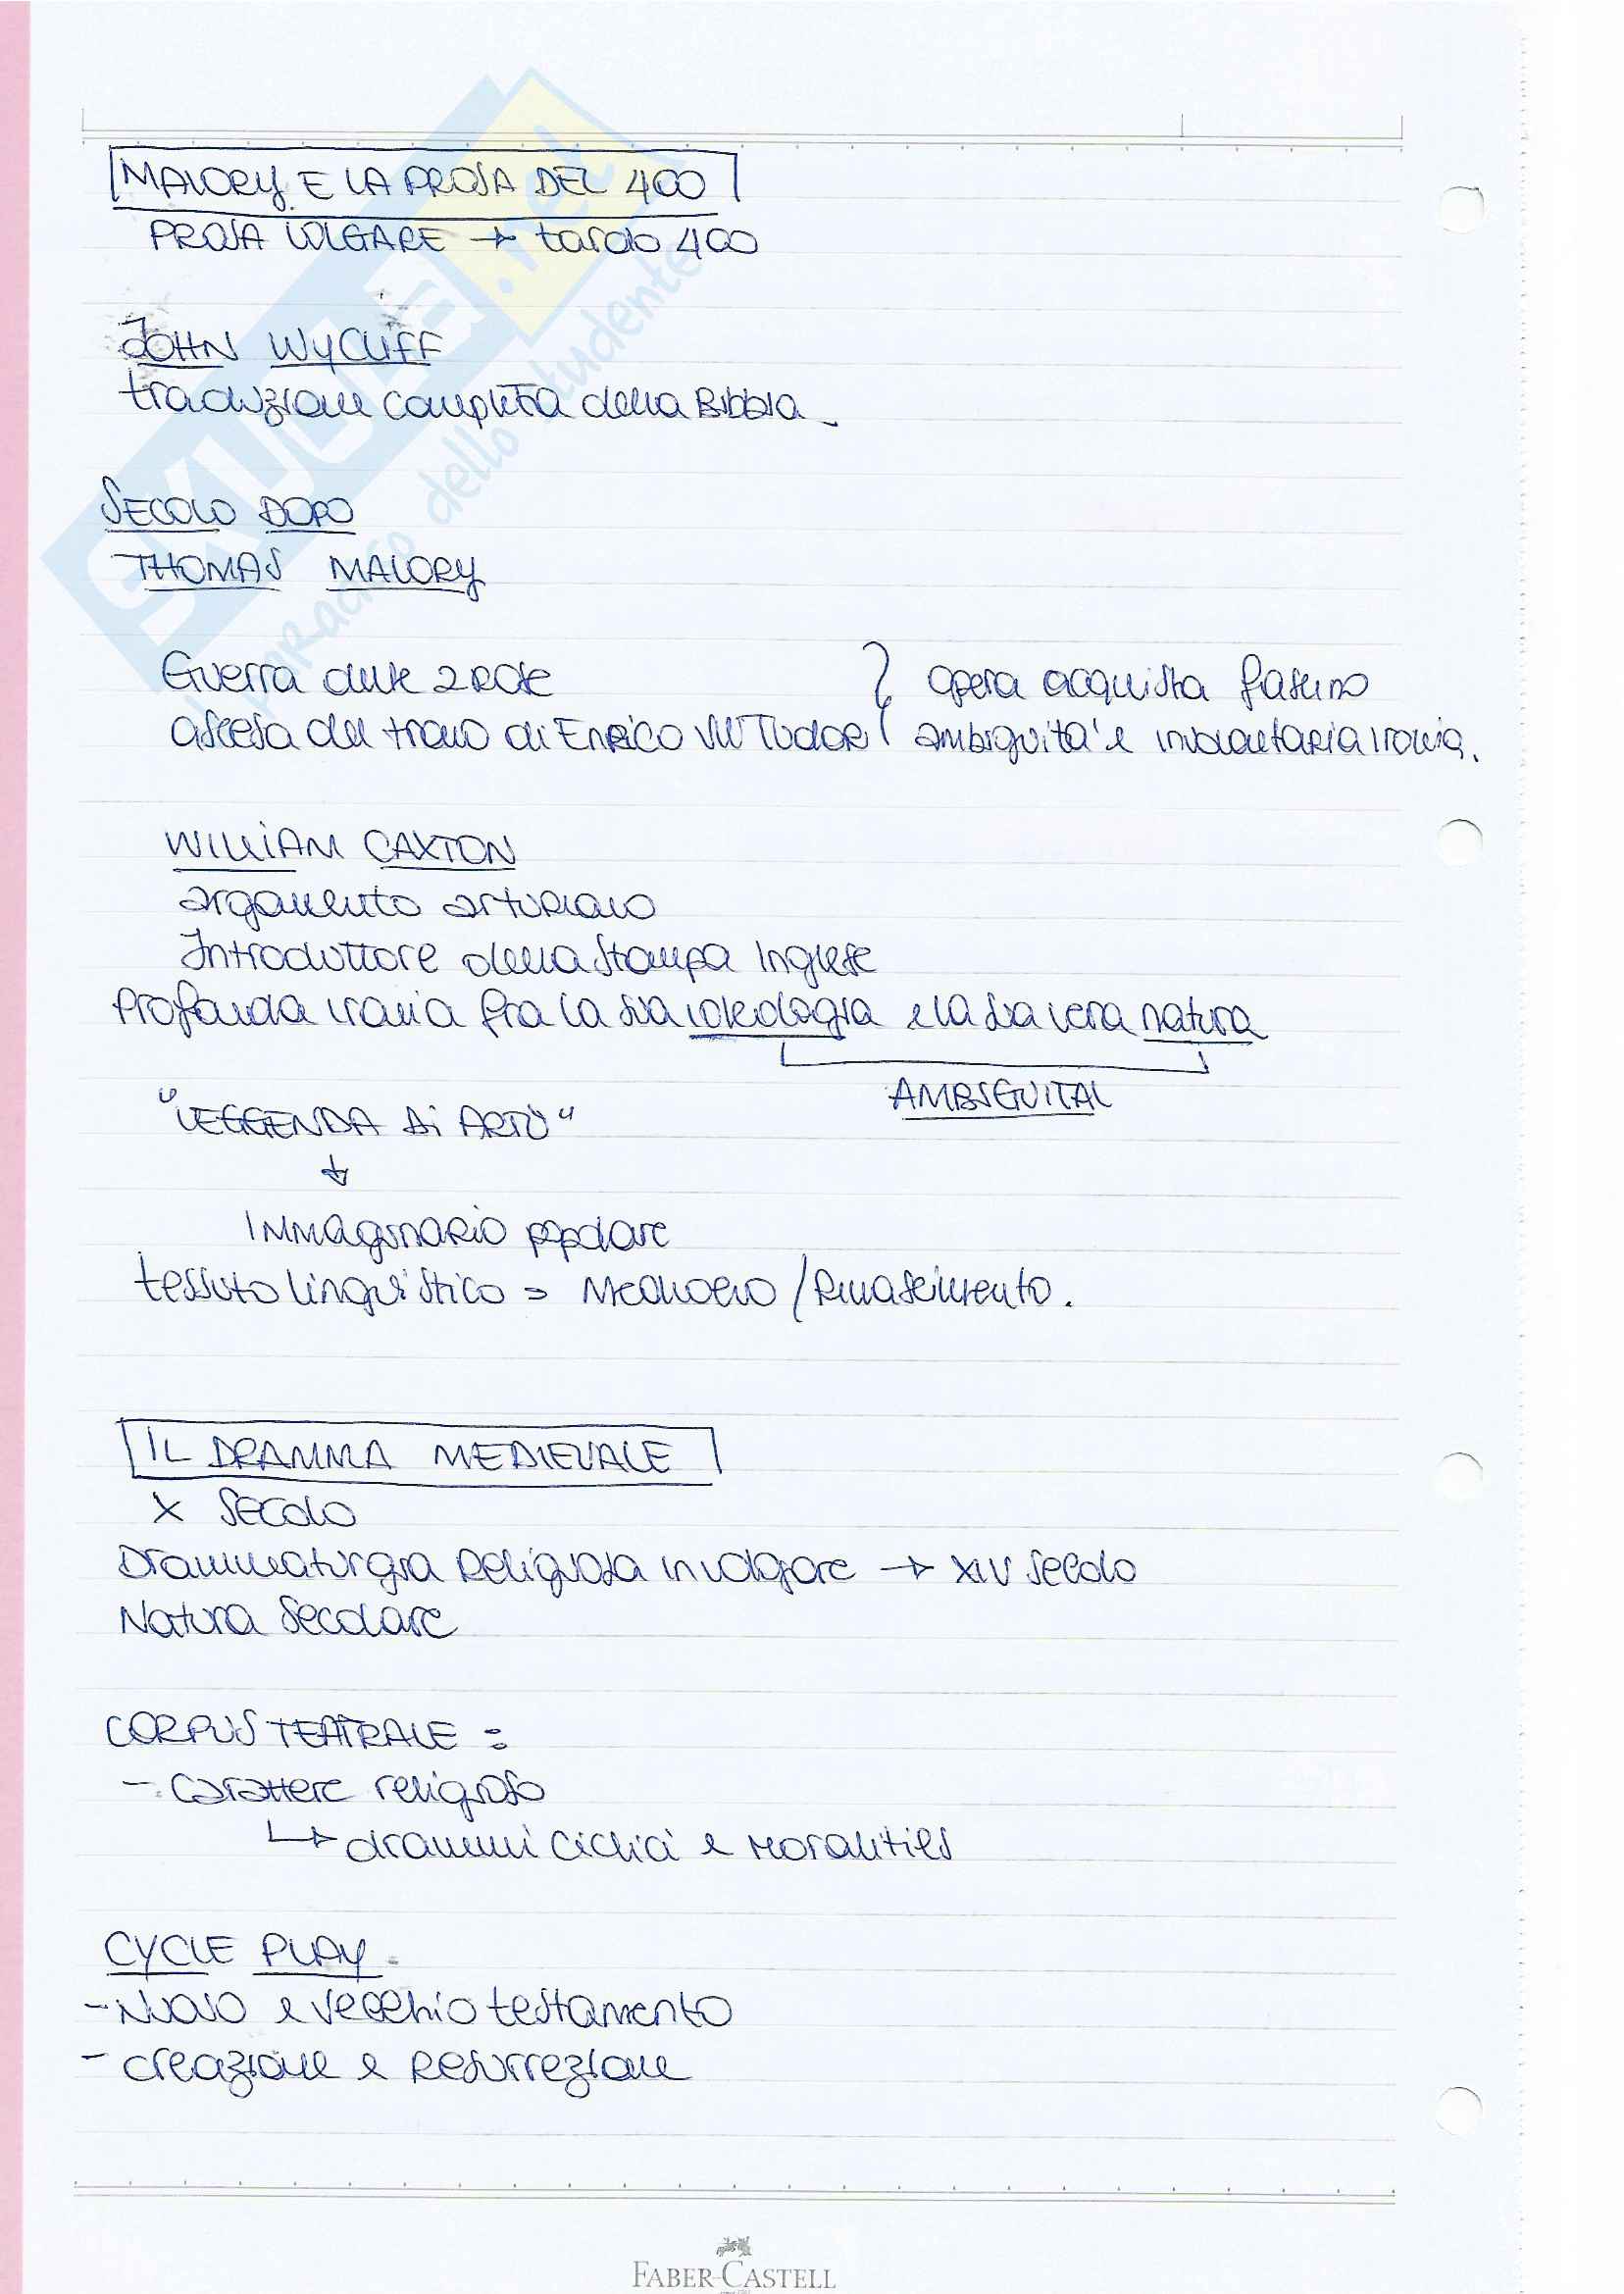 MALORY E LA PROSA DEL 400
PROSA VOLGARE → tardo 400
JOHN WYCLIFF
traduzione completa della Bibbia.
SECOLO DOPO
THOMAS MALORY
Guerra delle 2 Rose
ascesa del trono di Enrico VII Tudor
opera acquista fascino
ambiguità e involontaria ironia.
WILLIAM CAXTON
argomento arturiano
Introduttore della stampa inglese
Profonda ironia fra la sua ideologia e la sua vera natura
AMBIGUITA'
"LEGGENDA di ARTÙ"
↓
Immaginario popolare
tessuto linguistico = Medioevo / Rinascimento.
IL DRAMMA MEDIEVALE
X Secolo
Drammaturgia Religiosa in volgare → XIV secolo
Natura Secolare
CORPUS TEATRALE :
- Carattere religioso
↳ drammi ciclici e moralities
CYCLE PLAY
- Nuovo e vecchio testamento
- creazione e Resurrezione
FABER-CASTELL
SKUOLA.net
il paradiso dello studente